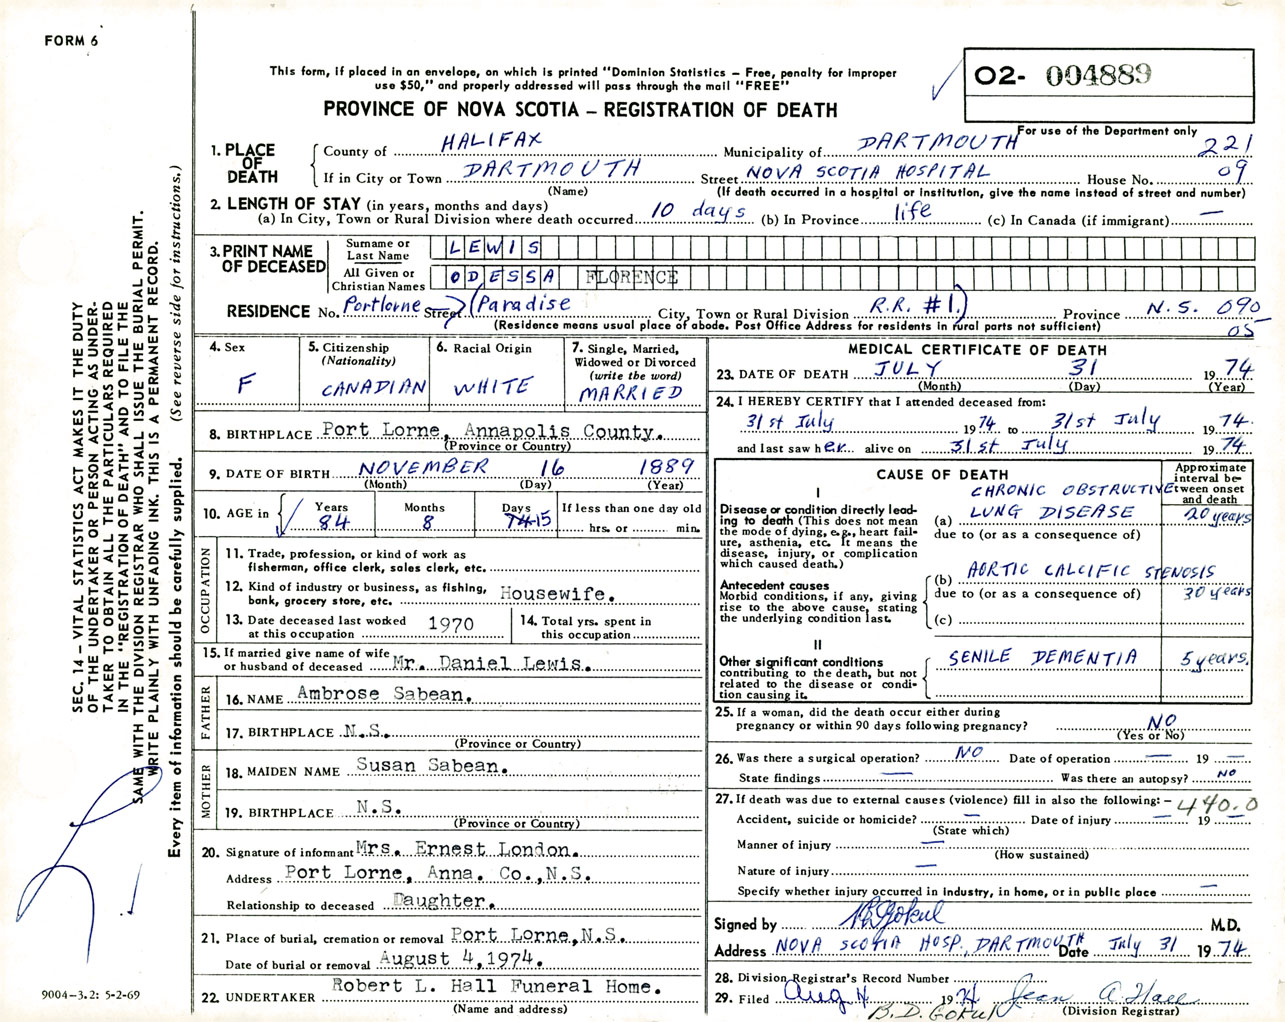 FORM 6
This form, if placed in an envelope, on which is printed "Dominion Statistics – Free, penalty for improper
use $50," and properly addressed will pass through the mail "FREE"
O2- 004889
PROVINCE OF NOVA SCOTIA – REGISTRATION OF DEATH
For use of the Department only
1. PLACE OF DEATH
County of HALIFAX Municipality of DARTMOUTH 221
If in City or Town DARTMOUTH Street NOVA SCOTIA HOSPITAL House No. 09
(Name) (If death occurred in a hospital or institution, give the name instead of street and number)
2. LENGTH OF STAY (in years, months and days)
(a) In City, Town or Rural Division where death occurred 10 days (b) In Province life (c) In Canada (if immigrant) —
3. PRINT NAME OF DECEASED
Surname or Last Name LEWIS
All Given or Christian Names ODESSA FLORENCE
RESIDENCE No. Portlorne Street (Paradise City, Town or Rural Division R.R. #1) Province N.S. 090
(Residence means usual place of abode. Post Office Address for residents in rural parts not sufficient) 05
4. Sex F
5. Citizenship (Nationality) CANADIAN
6. Racial Origin WHITE
7. Single, Married, Widowed or Divorced (write the word) MARRIED
8. BIRTHPLACE Port Lorne, Annapolis County.
(Province or Country)
9. DATE OF BIRTH NOVEMBER 16 1889
(Month) (Day) (Year)
10. AGE in Years 84 Months 8 Days 15 If less than one day old hrs. or min.
OCCUPATION
11. Trade, profession, or kind of work as
fisherman, office clerk, sales clerk, etc.
12. Kind of industry or business, as fishing,
bank, grocery store, etc. Housewife.
13. Date deceased last worked
at this occupation 1970
14. Total yrs. spent in
this occupation
15. If married give name of wife
or husband of deceased Mr. Daniel Lewis.
FATHER
16. NAME Ambrose Sabean.
17. BIRTHPLACE N.S.
(Province or Country)
MOTHER
18. MAIDEN NAME Susan Sabean.
19. BIRTHPLACE N.S.
(Province or Country)
20. Signature of informant Mrs. Ernest London.
Address Port Lorne, Anna. Co.,N.S.
Relationship to deceased Daughter.
21. Place of burial, cremation or removal Port Lorne,N.S.
Date of burial or removal August 4,1974.
22. UNDERTAKER Robert L. Hall Funeral Home.
(Name and address)
MEDICAL CERTIFICATE OF DEATH
23. DATE OF DEATH JULY 31 1974
(Month) (Day) (Year)
24. I HEREBY CERTIFY that I attended deceased from:
31st July 1974 to 31st July 1974.
and last saw her alive on 31st July 1974
CAUSE OF DEATH
Approximate interval between onset and death
I
Disease or condition directly leading to death (This does not mean the mode of dying, e.g., heart failure, asthenia, etc. It means the disease, injury, or complication which caused death.)
CHRONIC OBSTRUCTIVE
(a) LUNG DISEASE 20 years
due to (or as a consequence of)
Antecedent causes
Morbid conditions, if any, giving rise to the above cause, stating the underlying condition last.
(b) AORTIC CALCIFIC STENOSIS 30 years
due to (or as a consequence of)
(c)
II
Other significant conditions
contributing to the death, but not related to the disease or condition causing it.
SENILE DEMENTIA 5 years.
25. If a woman, did the death occur either during
pregnancy or within 90 days following pregnancy? NO
(Yes or No)
26. Was there a surgical operation? NO Date of operation — 19 —
State findings — Was there an autopsy? NO
27. If death was due to external causes (violence) fill in also the following: – 440.0
Accident, suicide or homicide? — Date of injury — 19 —
(State which)
Manner of injury —
(How sustained)
Nature of injury —
Specify whether injury occurred in industry, in home, or in public place —
Signed by Gokul M.D.
Address NOVA SCOTIA HOSP, DARTMOUTH Date July 31 1974
28. Division Registrar's Record Number
29. Filed Aug 4 1974 Jean A Hall
B.D. GOKUL (Division Registrar)
SEC. 14 – VITAL STATISTICS ACT MAKES IT THE DUTY
OF THE UNDERTAKER OR PERSON ACTING AS UNDER-
TAKER TO OBTAIN ALL THE PARTICULARS REQUIRED
IN THE "REGISTRATION OF DEATH" AND TO FILE THE
SAME WITH THE DIVISION REGISTRAR WHO SHALL ISSUE THE BURIAL PERMIT.
WRITE PLAINLY WITH UNFADING INK. THIS IS A PERMANENT RECORD.
Every item of information should be carefully supplied. (See reverse side for instructions.)
9004–3.2: 5-2-69